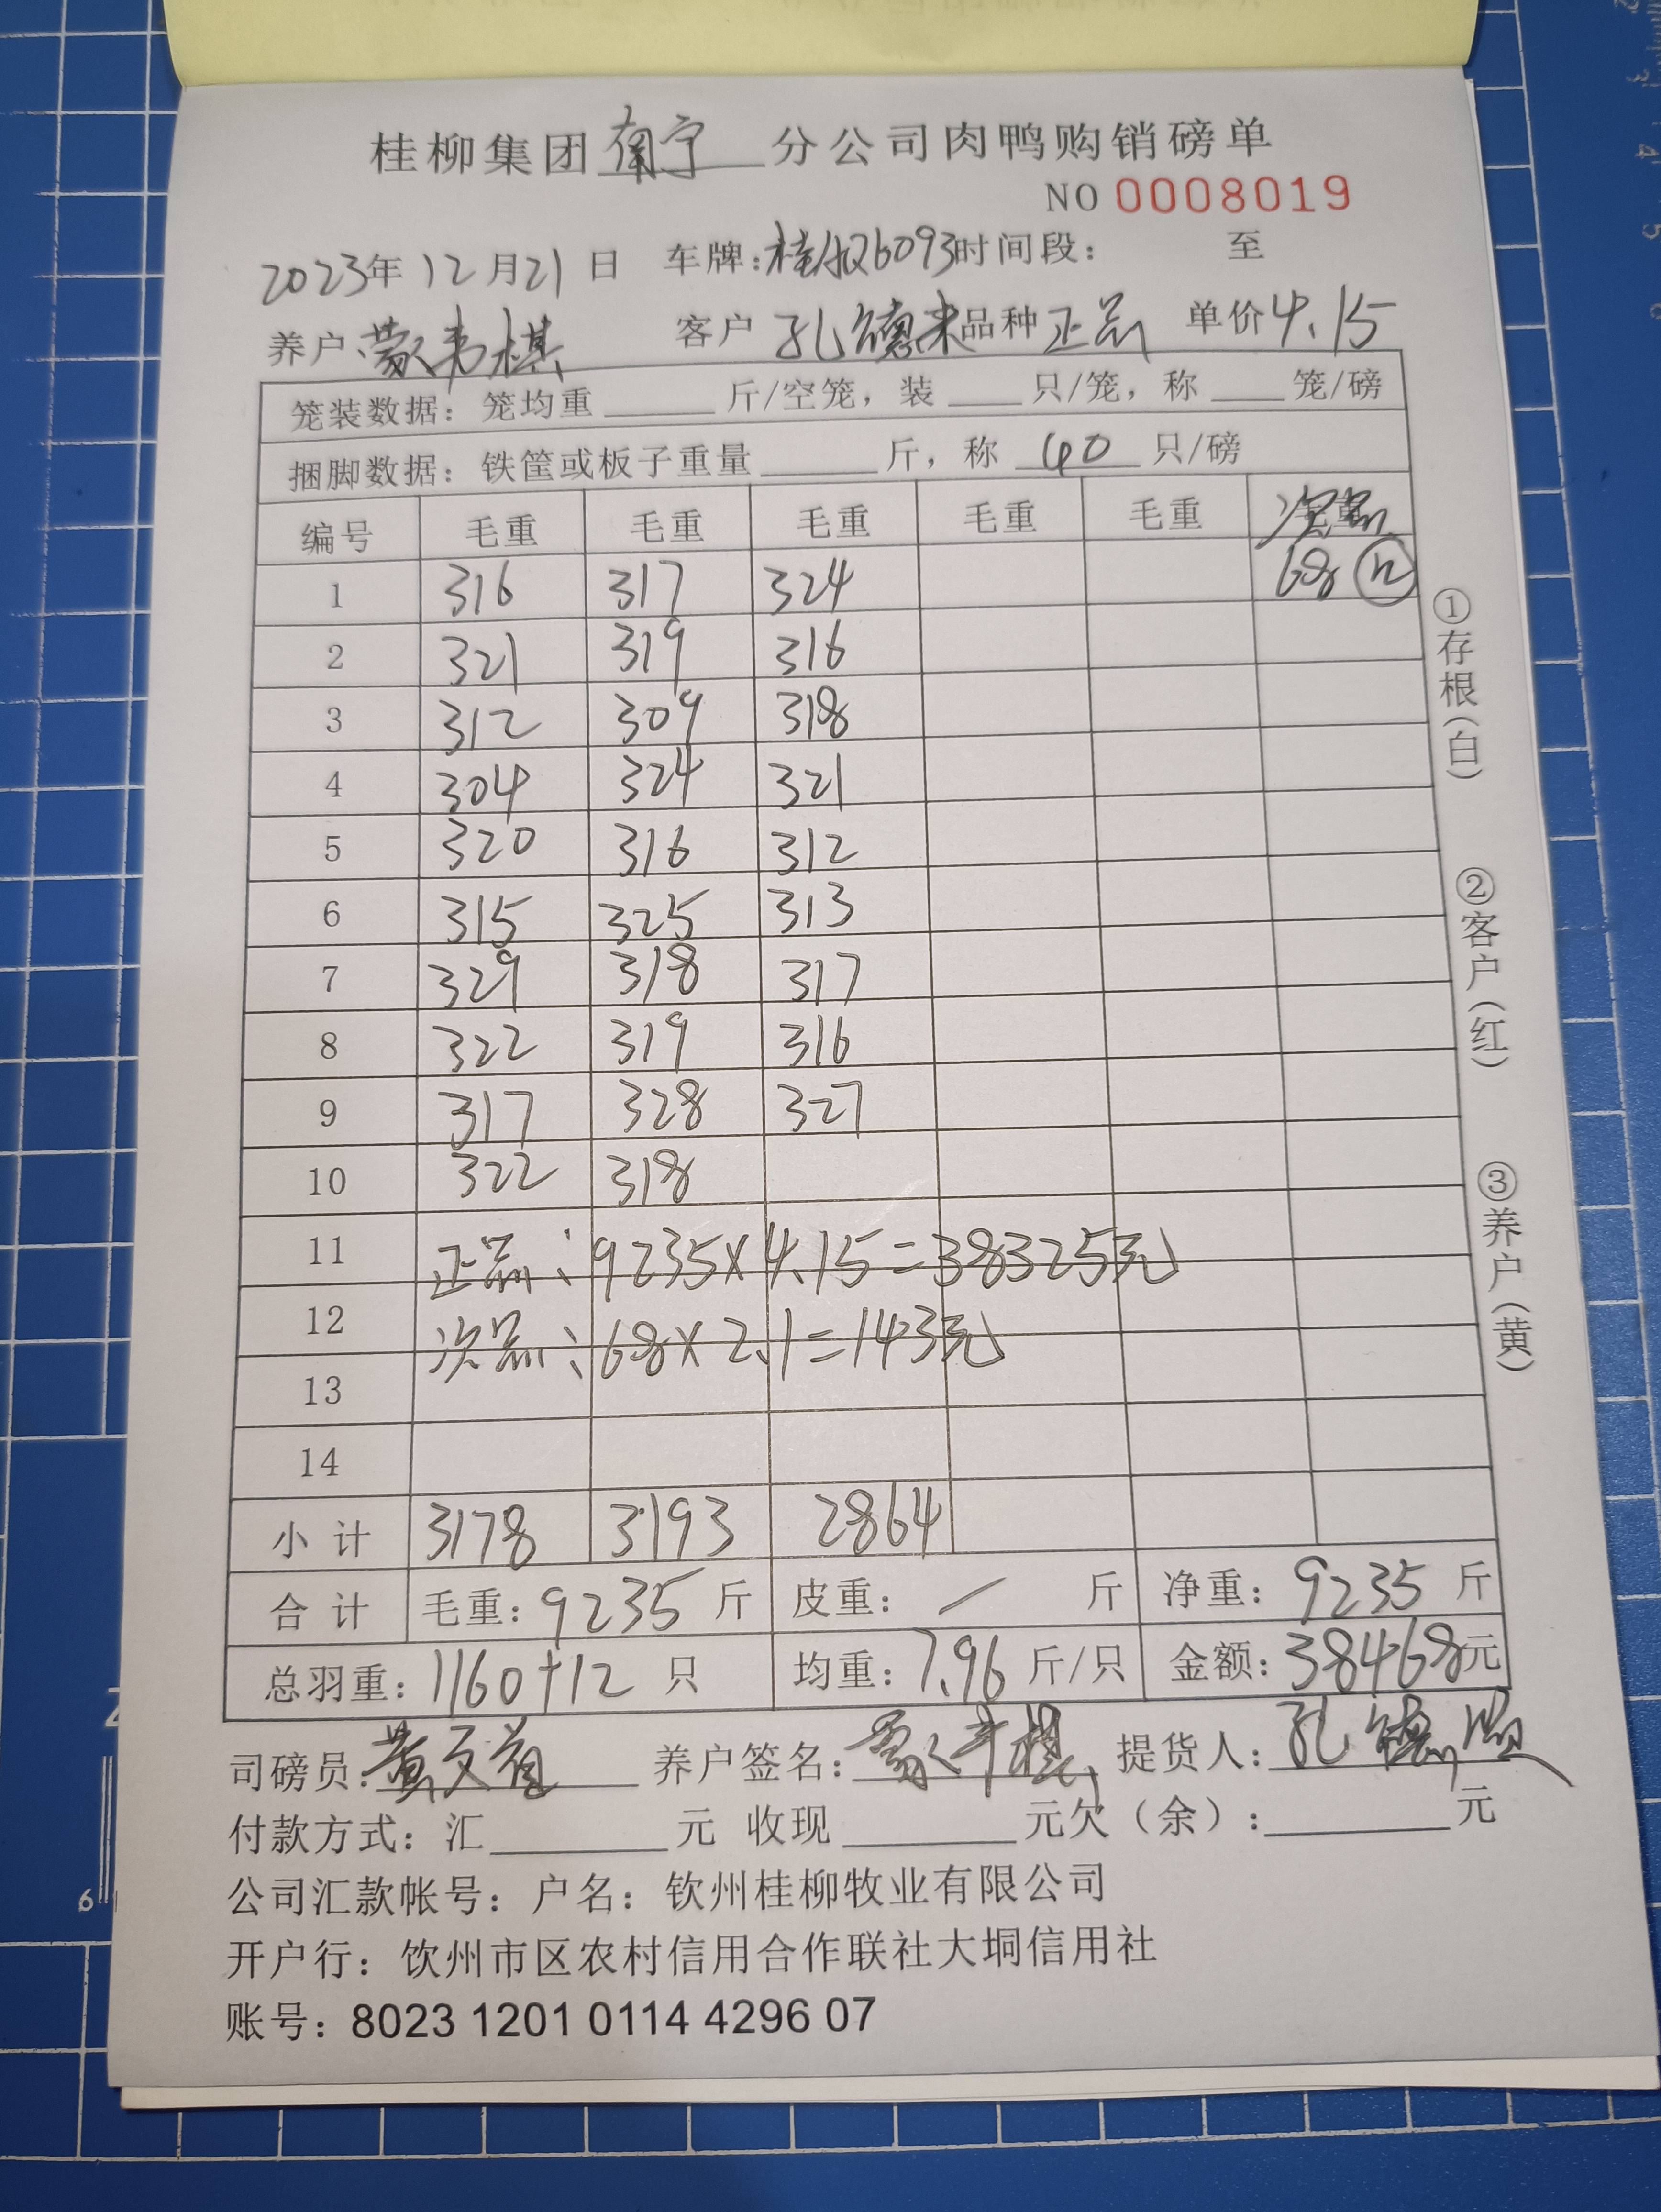 桂柳集团 南宁 分公司肉鸭购销磅单
NO 0008019
2023年12月21日 车牌: 时间段: 至
养户: 客户 孔德 品种 正品 单价 4.15
笼装数据: 笼均重 斤/空笼, 装 只/笼, 称 笼/磅
捆脚数据: 铁筐或板子重量 斤, 称 40 只/磅
编号 毛重 毛重 毛重 毛重 毛重 次品
1 316 317 324 68 ⑫
2 321 319 316
3 312 309 318
4 304 324 321
5 320 316 312
6 315 325 313
7 329 318 317
8 322 319 316
9 317 328 327
10 322 318
11 正品: 9235×4.15=38325元
12 次品: 68×2.1=143元
13
14
小计 3178 3193 2864
合计 毛重: 9235 斤 皮重: / 斤 净重: 9235 斤
总羽重: 1160+12 只 均重: 7.96 斤/只 金额: 38468元
司磅员: 黄 养户签名: 提货人: 孔德
付款方式: 汇 元 收现 元欠(余): 元
公司汇款帐号: 户名: 钦州桂柳牧业有限公司
开户行: 钦州市区农村信用合作联社大垌信用社
账号: 8023 1201 0114 4296 07
①存根(白)
②客户(红)
③养户(黄)